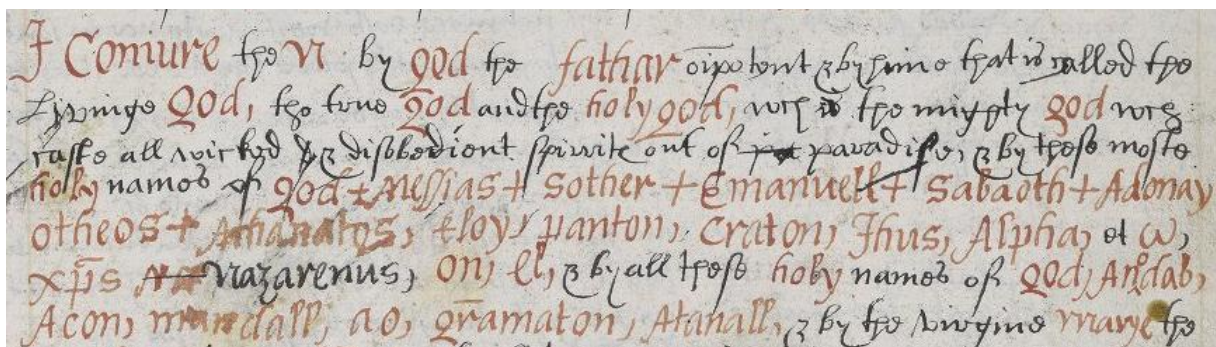 I Coniure the N by god the fathar oīpotent & by hime that is called the
Lyvinge God, the true god and the holy god, wch is the mighty god wch
caste all wicked & disobedient spirite out of paradise, & by these moste
holy names of god + Messias + Sother + Emanuell + Sabaoth + Adonay
otheos + Athanatos, Eloy, panton, Craton, Jhus, Alpha, et ω,
xp̄s Nazarenus, on, el, & by all these holy names of God,
Acon, ao, gramaton, & by the virgine marye the